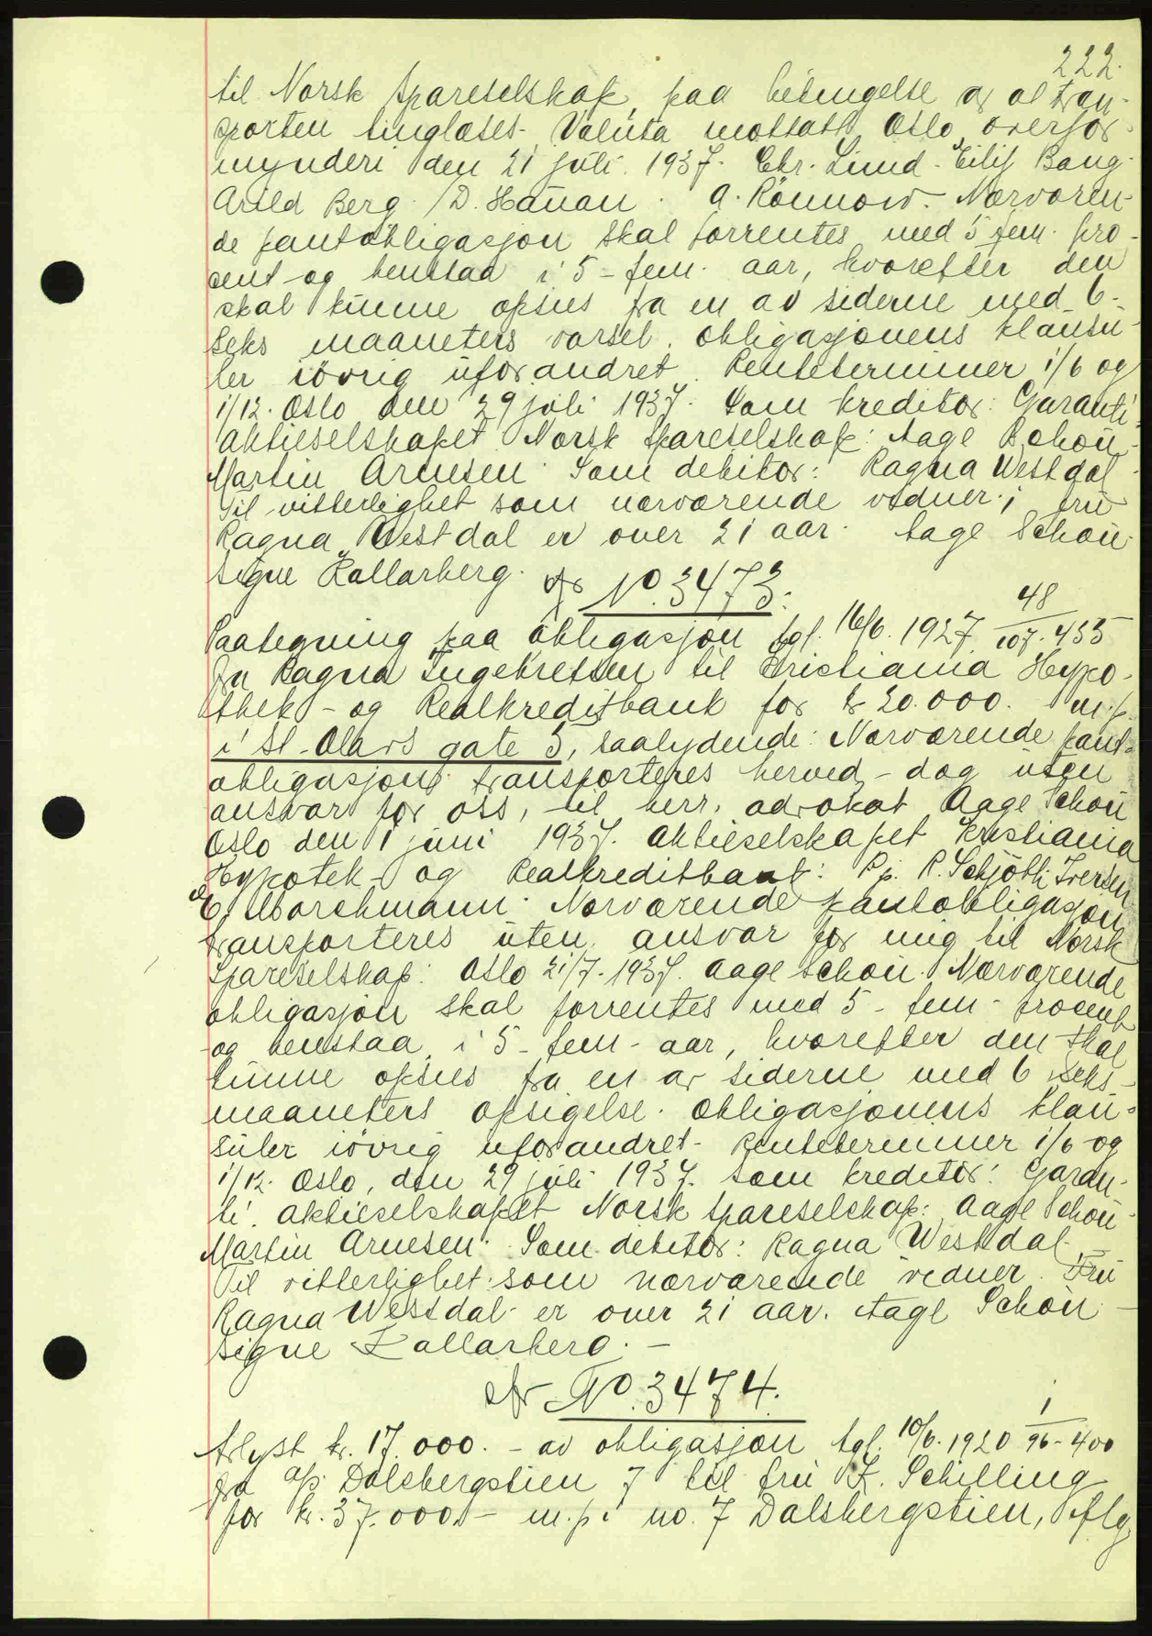 222.
til Norsk Spareselskap, paa betingelse av at tran-
sporten tinglæses. Valuta mottatt Oslo overfor-
mynderi den 21 juli 1937. Chr. Lund. Eilif Bang.
Arild Berg. D. Hauan. A. Rönnow. Nærværen-
de pantobligasjon skal forrentes med 5 fem pro-
cent og henstaa i 5 - fem - aar, hvorefter den
skal kunne opsies fra en av siderne med 6 -
seks maaneters varsel. Obligasjonens klausu-
ler iövrig uforandret. Renteterminer 1/6 og
1/12. Oslo den 29 juli 1937. Som kreditor: Garanti-
aktieselskapet Norsk Spareselskap: Aage Schou.
Martin Arnesen. Som debitor: Ragna Westdal.
Til vitterlighet som nærværende vidner; fru
Ragna Westdal er over 21 aar. Aage Schou.
Signe Kallarberg.
No. 3473.
Paategning paa obligasjon tgl. 16/6. 1927 48/107-455
fra Ragna Ingebretsen til Kristiania Hypo-
thek - og Realkreditbank for kr 20.000. m.p.
i St. Olavs gate 5, saalydende: Nærværende pant-
obligasjon transporteres herved - dog uten
ansvar for oss, til herr advokat Aage Schou
Oslo den 1 juni 1937. Aktieselskapet Kristiania
Hypotek- og Realkreditbank: P.p. R. Schjöth Iversen
E. Morchmann. Nærværende pantobligasjon
transporteres uten ansvar for mig til Norsk
Spareselskap: Oslo 21/7-1937. Aage Schou. Nærværende
obligasjon skal forrentes med 5 - fem - procent
og henstaa i 5 - fem - aar, hvorefter den skal
kunne opsies fra en av siderne med 6 seks -
maaneters opsigelse. Obligasjonens klau-
suler iövrig uforandret. Renteterminer 1/6 og
1/12. Oslo, den 29 juli 1937. Som kreditor: Garan-
ti. aktieselskapet Norsk Spareselskap: Aage Schou.
Martin Arnesen. Som debitor: Ragna Westdal.
Til vitterlighet som nærværende vidner. Fru
Ragna Westdal er over 21 aar. Aage Schou -
Signe Kallarberg. -
No. 3474.
Avlyst kr. 17.000. - av obligasjon tgl. 10/6. 1920 1/96-400
fra a/s Dalsbergstien 7 til fru K. Schilling
for kr. 37.000. - m.p. i no. 7 Dalsbergstien, iflg.